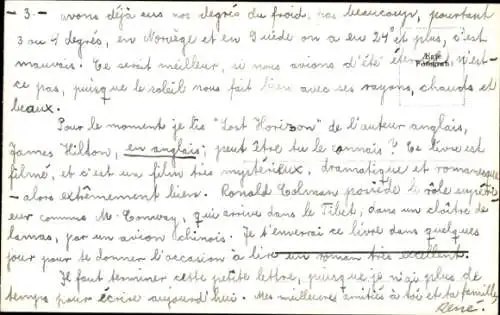 - 3. - avons déjà eus nos degrés du froid, pas beaucoup, pourtant
3 ou 4 degrés, en Norvège et en Suède on a eu 24 et plus, c'est
mauvais. Ce serait meilleur, si nous avions d'été n'est-
ce pas, puisque le soleil nous fait bien avec ses rayons, chauds et
beaux.
Echte
Fotografi
Pour le moment je lis "Lost Horizon" de l'auteur anglais,
James Hilton, en anglais; peut être tu le connais? Ce livre est
filmé, et c'est un film très mystérieux, dramatique et romanesque
- alors extrêmement bien. Ronald Colman possède le rôle
eur comme Mr. Conway, qui arrive dans le Tibet, dans un cloître de
lamas, par un avion chinois. Je t'enverrai ce livre dans quelques
jours pour te donner l'occasion à lire un roman très excellent.
Il faut terminer cette petite lettre, puisque je n'ai plus de
temps pour écrire aujourd'hui. Mes meilleures amitiés à toi et ta famille
René.